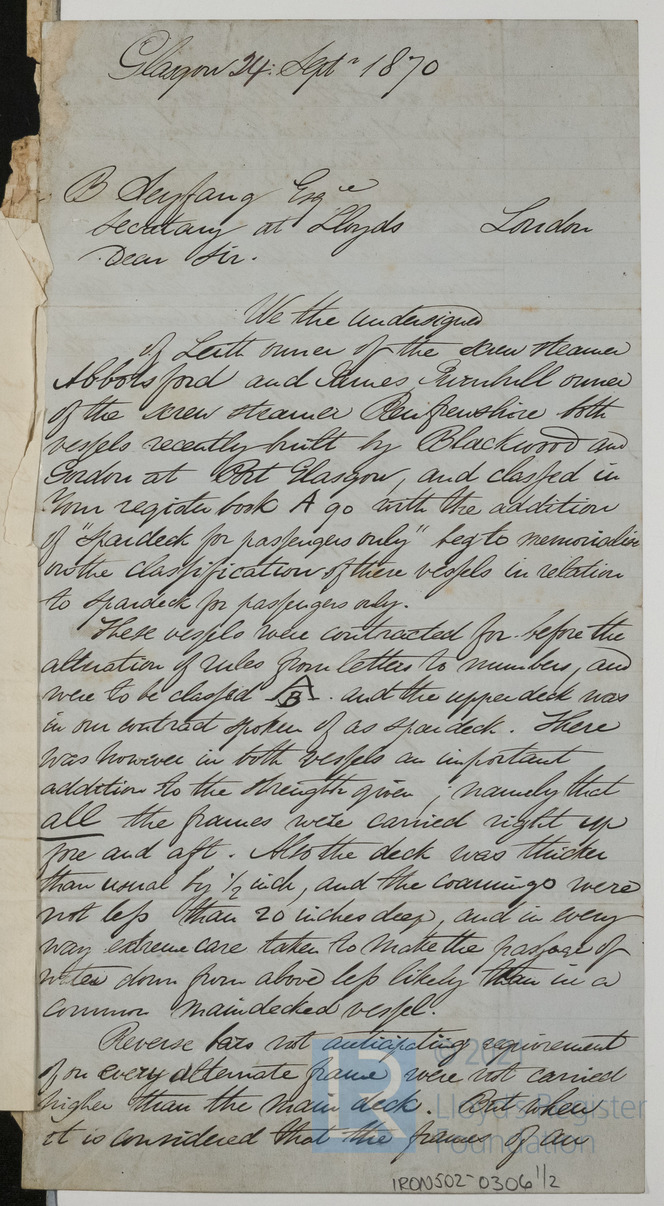 Glasgow 24. Septr 1870
B Seyfang Esqre
Secretary at Lloyds London
Dear Sir.
We the undersigned
of Leith owner of the screw steamer
Abbotsford and James Turnbull owner
of the screw steamer Renfrewshire both
vessels recently built by Blackwood and
Gordon at Port Glasgow, and classed in
Your register book A 90 with the addition
of "Spardeck for passengers only" beg to memorialise
on the classification of these vessels in relation
to spardeck for passengers only.
These vessels were contracted for before the
alteration of rules from letters to numbers, and
were to be classed B and the upper deck was
in our contract spoken of as spardeck. There
was however in both vessels an important
addition to the strength given; namely that
all the frames were carried right up
fore and aft. Also the deck was thicker
than usual by 1/2 inch, and the coamings were
not less than 20 inches deep, and in every
way extreme care taken to make the passage of
water down from above less likely than in a
common maindecked vessel.
Reverse bars not anticipating requirement
of on every alternate frame were not carried
higher than the main deck. But when
it is considered that the frames of an
© 2021
LR
Lloyd's Register
Foundation
IRON502-0306 1/2